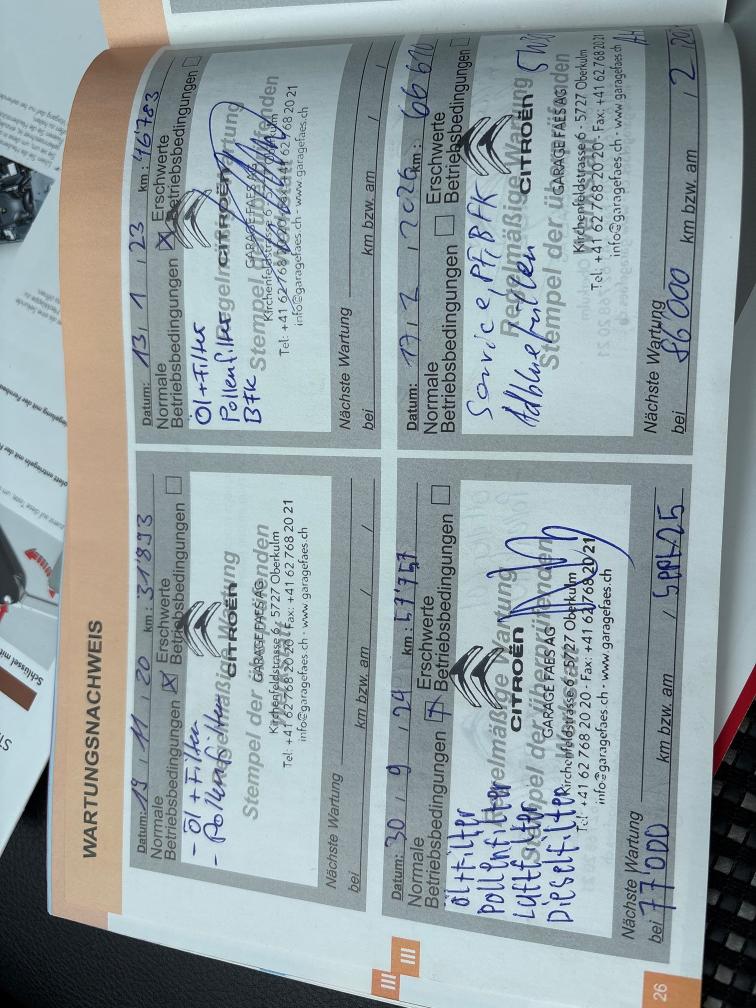 WARTUNGSNACHWEIS
Datum: 19 / 11 / 20 km: 31'893
Normale Betriebsbedingungen ☒
Erschwerte Betriebsbedingungen ☐
- Öl + Filter
- Pollenfilter
Regelmäßige Wartung
Stempel der überprüfenden
CITROËN
GARAGE FAES AG
Kirchenfeldstrasse 6 · 5727 Oberkulm
Tel: +41 62 768 20 20 · Fax: +41 62 768 20 21
info@garagefaes.ch · www.garagefaes.ch
Nächste Wartung
bei km bzw. am / /
Datum: 13 / 1 / 23 km: 46'783
Normale Betriebsbedingungen
Erschwerte Betriebsbedingungen ☐
Öl + Filter
Pollenfilter
BFK
Stempel der überprüfenden
CITROËN
GARAGE FAES AG
Kirchenfeldstrasse 6 · 5727 Oberkulm
Tel: +41 62 768 20 21
info@garagefaes.ch
Nächste Wartung
bei km bzw. am / /
Datum: 30 / 9 / 24 km: 57'757
Normale Betriebsbedingungen
Erschwerte Betriebsbedingungen ☐
Öl + Filter
Pollenfilter
Luftfilter
Dieselfilter
Regelmäßige Wartung
Stempel der überprüfenden
CITROËN
GARAGE FAES AG
Kirchenfeldstrasse 6 · 5727 Oberkulm
Tel: +41 62 768 20 20 · Fax: +41 62 768 20 21
info@garagefaes.ch · www.garagefaes.ch
Nächste Wartung
bei 77'000 km bzw. am / Sept. 25
Datum: 17 / 2 / 2026 km:
Normale Betriebsbedingungen ☐
Erschwerte Betriebsbedingungen ☐
Service, PF, BFK
Adblue füllen
Regelmäßige Wartung
Stempel der überprüfenden
CITROËN
GARAGE FAES AG
Kirchenfeldstrasse 6 · 5727 Oberkulm
Tel: +41 62 768 20 20 · Fax: +41 62 768 20 21
info@garagefaes.ch · www.garagefaes.ch
Nächste Wartung
bei 86000 km bzw. am / 2 /
III
III
26